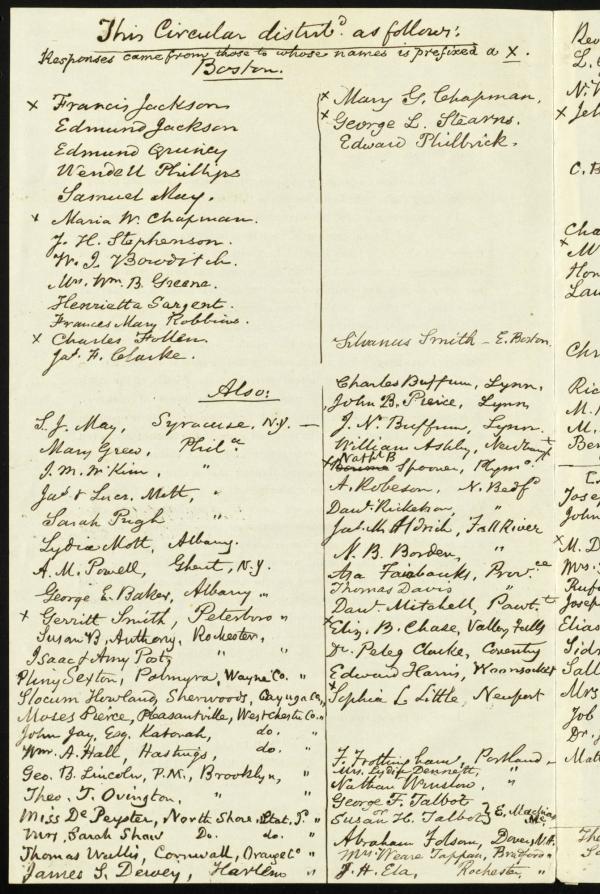 This Circular distrib.d as follows:
Responses came from those to whose names is prefixed a x.
Boston.
x Francis Jackson
Edmund Jackson
Edmund Quincy
Wendell Phillips
Samuel May.
x Maria W. Chapman.
J. H. Stephenson.
W. I. Bowditch.
Mrs. Wm. B. Greene.
Henrietta Sargent.
Frances Mary Robbins.
x Charles Follen.
Jas. F. Clarke.
x Mary G. Chapman.
x George L. Stearns.
Edward Philbrick.
Silvanus Smith - E. Boston.
Also:
S. J. May, Syracuse, N.Y. —
Mary Grew, Phila.
J. M. McKim, "
Jas. & Lucr. Mott, "
Sarah Pugh "
Lydia Mott, Albany.
A. M. Powell, Ghent, N.Y.
George E. Baker, Albany "
x Gerritt Smith, Peterboro "
Susan B. Anthony, Rochester, "
Isaac & Amy Post, " "
Pliny Sexton, Palmyra, Wayne Co. "
Slocum Howland, Sherwoods, Cayuga Co., "
Moses Pierce, Pleasantville, Westchester Co. "
John Jay, Esq. Katonah, do. "
Wm. A. Hall, Hastings, do. "
Geo. B. Lincoln, P.M., Brooklyn, "
Theo. T. Ovington, " "
Miss De Peyster, North Shore, Stat. I. "
Mrs. Sarah Shaw Do. do. "
Thomas Wallis, Cornwall, Orange Co "
James S. Dewey, Harlem "
Charles Buffum, Lynn,
John B. Pierce, Lynn
J. N. Buffum, Lynn.
William Ashby, Newburypt
Nathl B
x Spooner, Plymo.
A. Robeson, N. Bedfd
Danl. Ricketson, "
Jas. M. Aldrich, Fall River
N. B. Borden, "
Asa Fairbanks, Prov.ce
Thomas Davis "
Danl. Mitchell, Pawt.t
x Eliz. B. Chase, Valley Falls
Dr. Peleg Clarke, Coventry
Edward Harris, Woonsocket
x Sophia L. Little, Newport
F. Frothingham, Portland -
Mrs. Lydia Dennett, "
Nathan Winslow, "
George F. Talbot
or
Susan H. Talbot } E. Machias Me.
Abraham Folsom, Dover, N.H.
Mrs Weare Tappan, Bradford "
J. H. Ela, Rochester, "